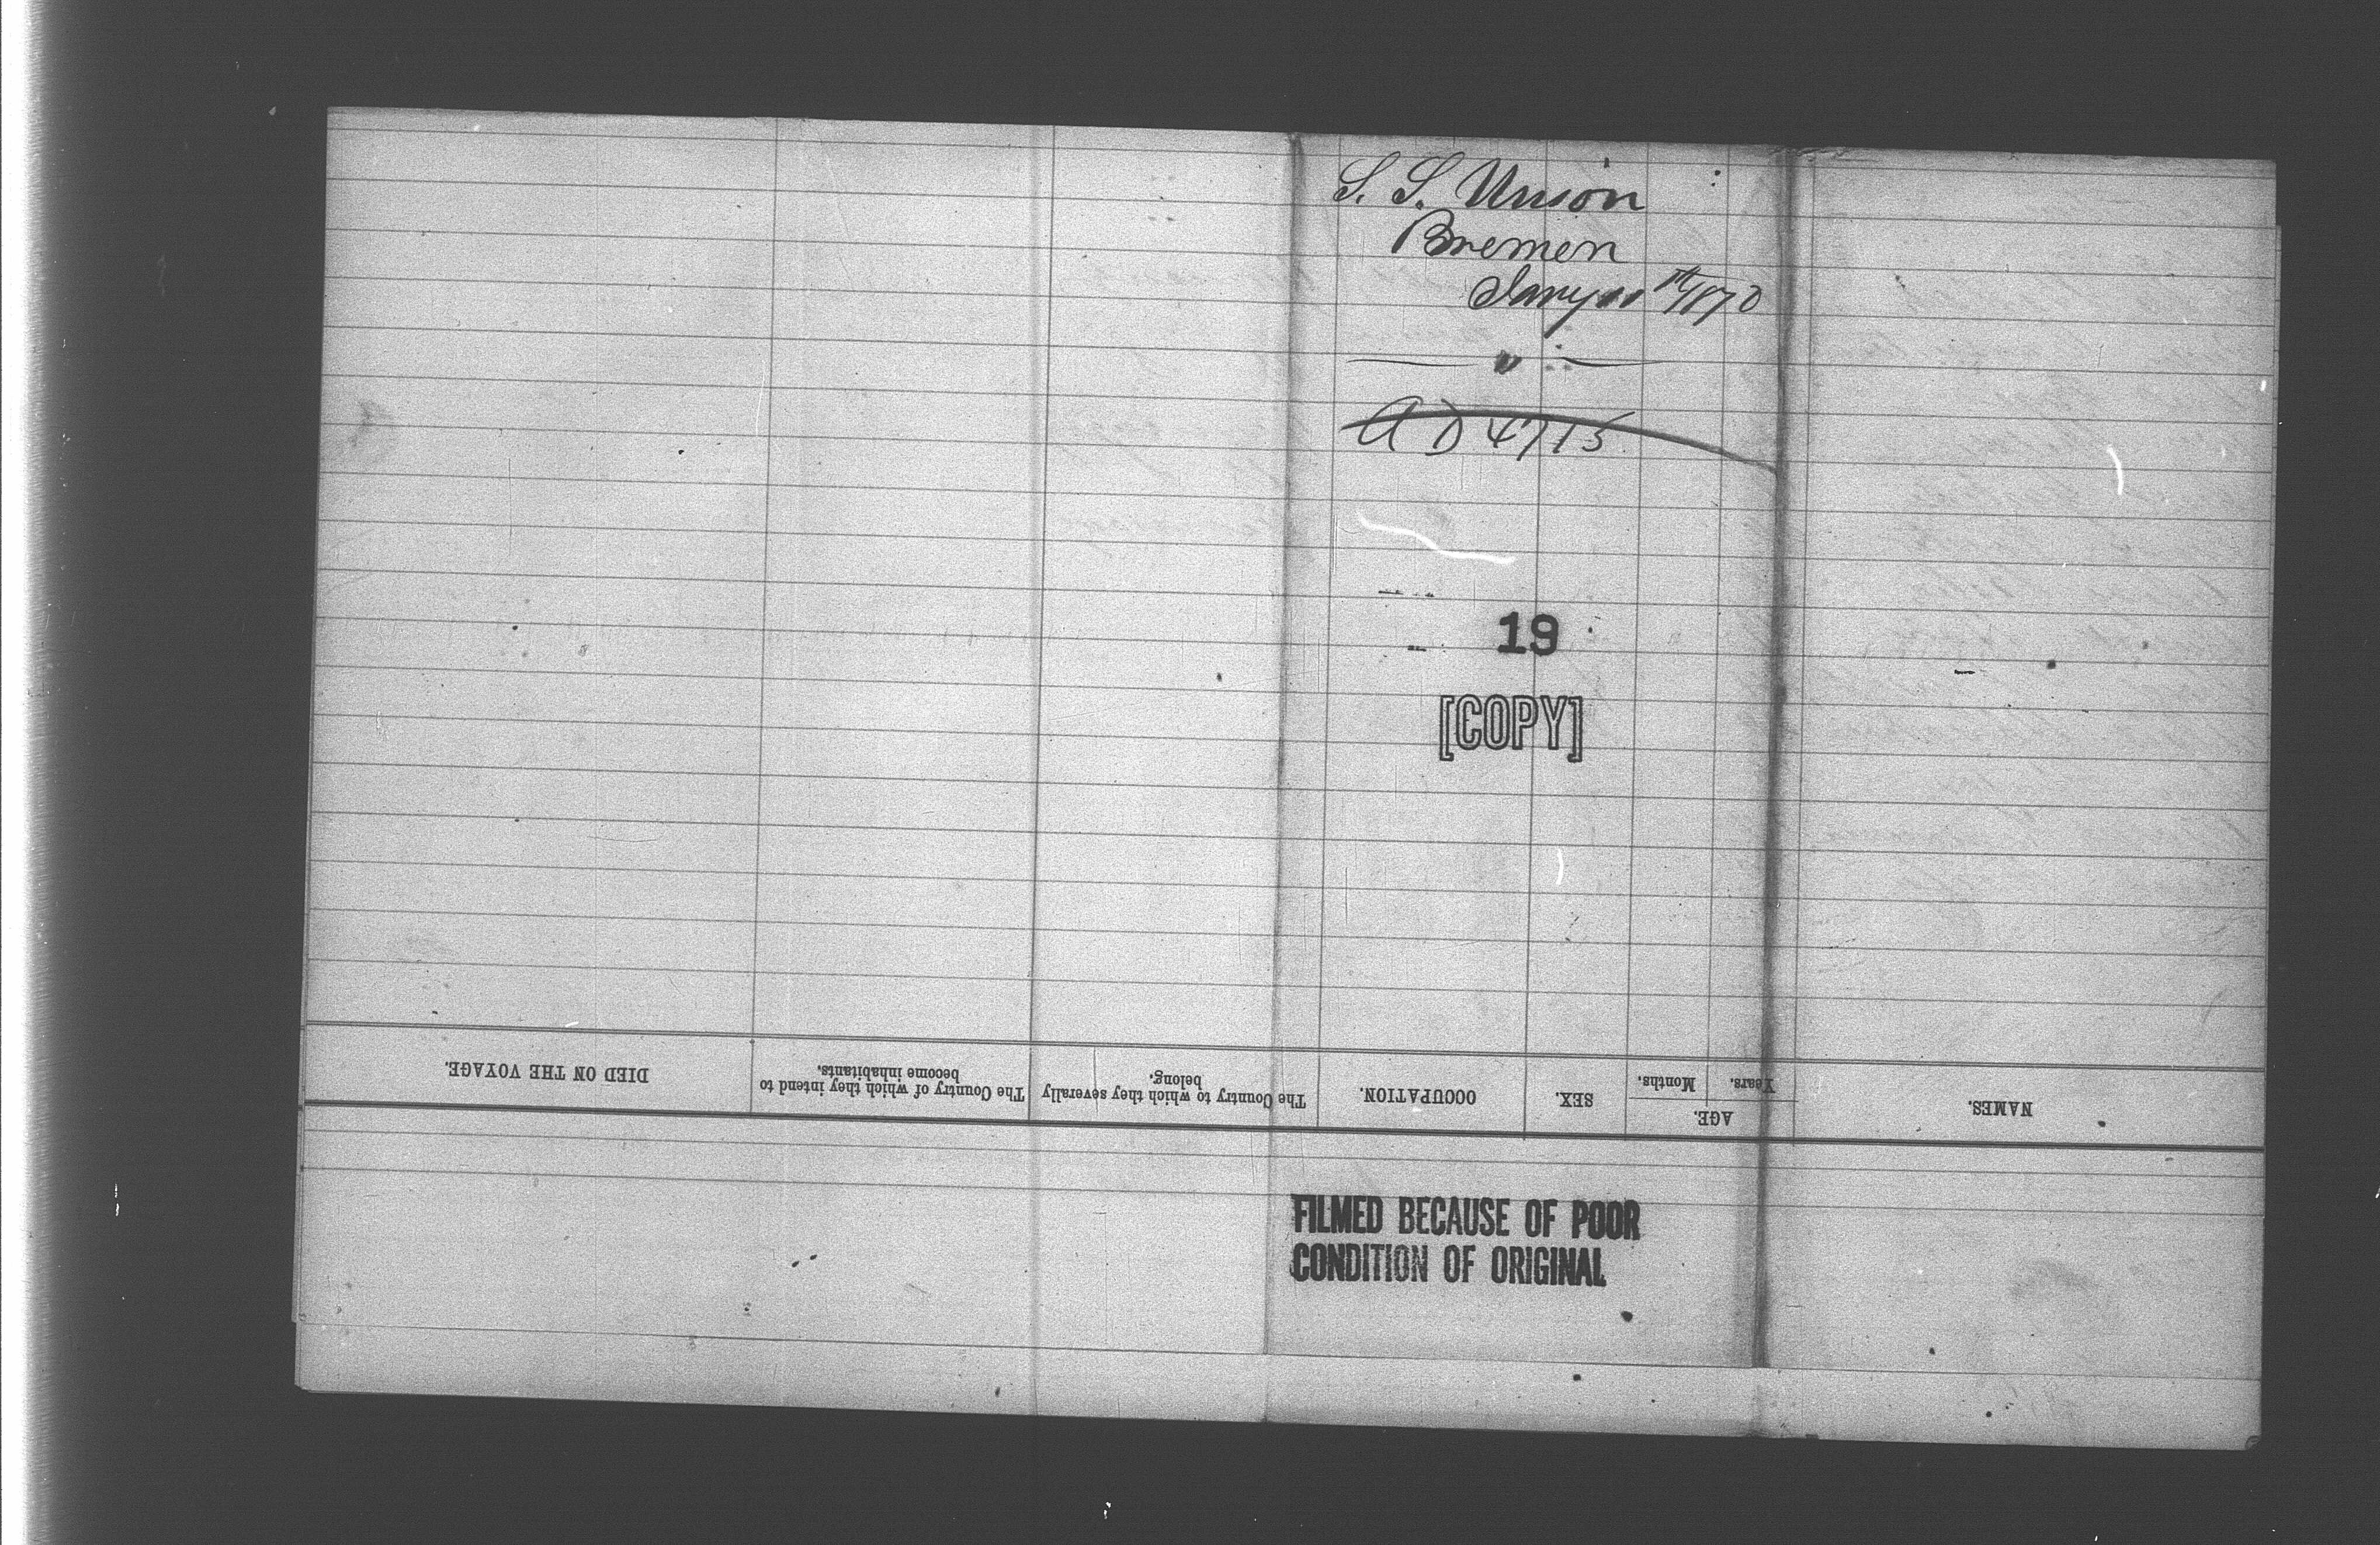 S. S. Union
Bremen
Jany 11th/1870
AD 4715
19
[COPY]
NAMES.
AGE.
Years.
Months.
SEX.
OCCUPATION.
The Country to which they severally
belong.
The Country of which they intend to
become inhabitants.
DIED ON THE VOYAGE.
FILMED BECAUSE OF POOR
CONDITION OF ORIGINAL